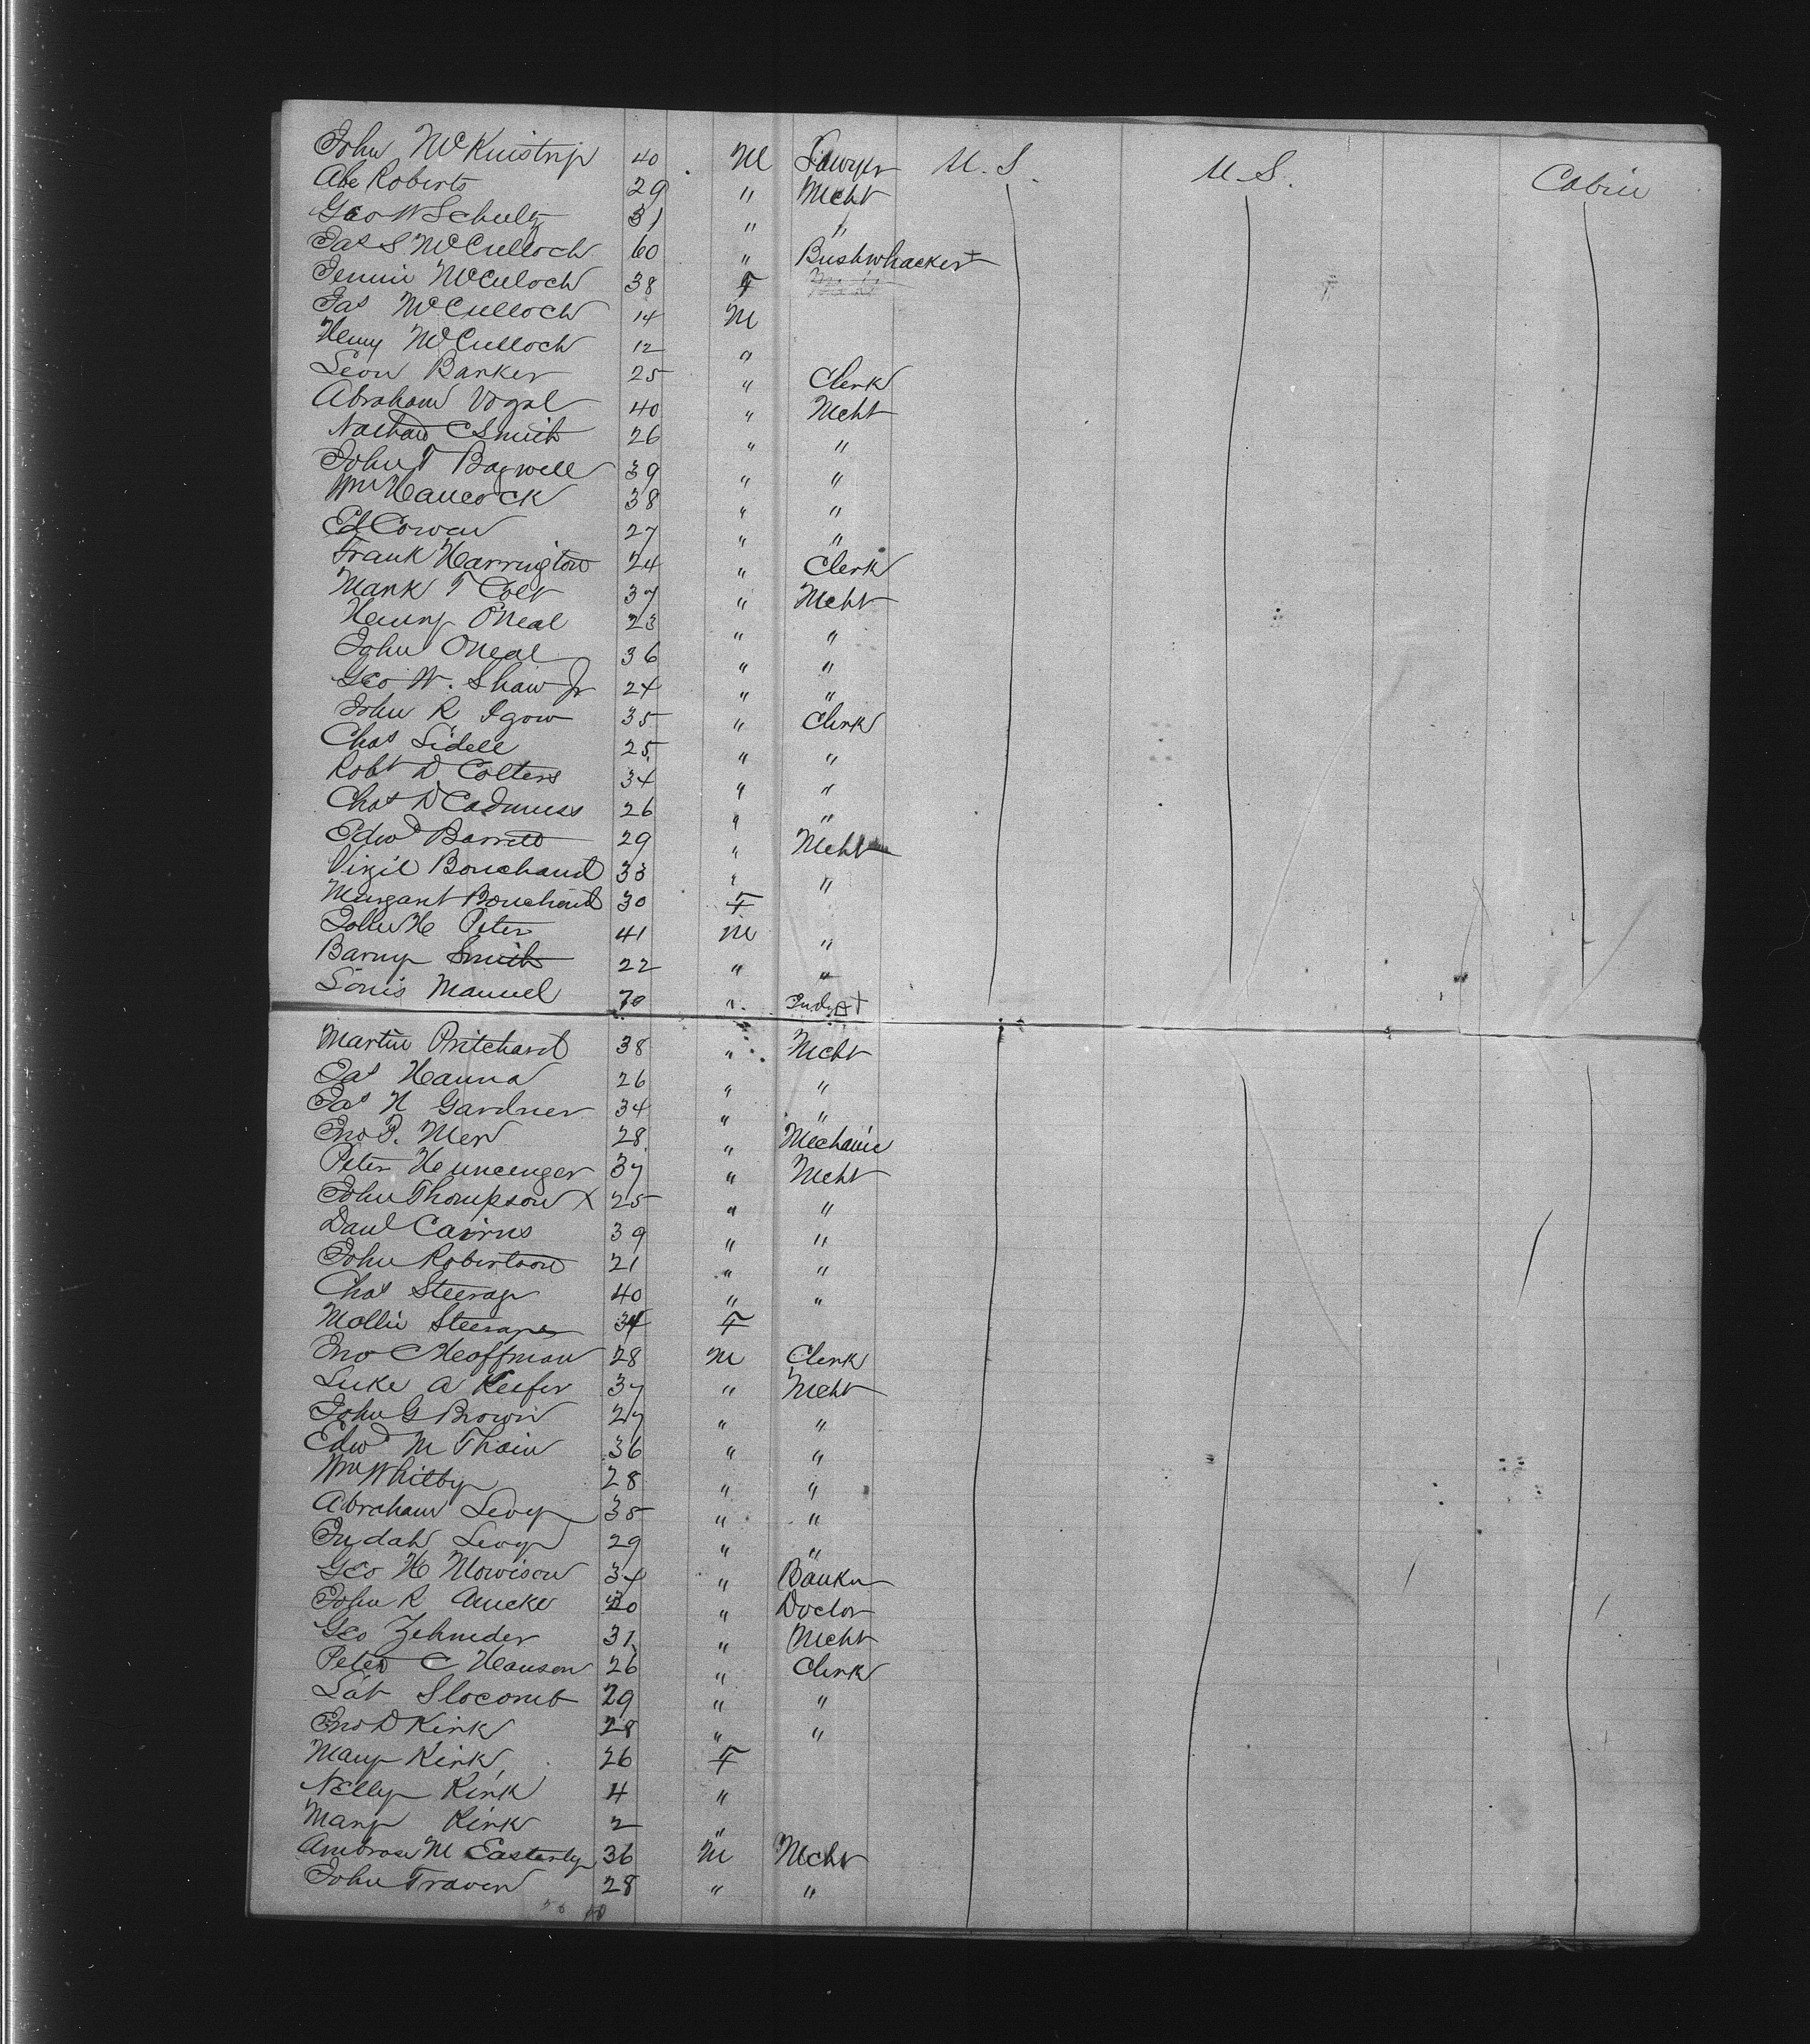 John McKinstry 40 M Lawyer U.S. U.S. Cabin
Abe Roberts 29 " Mcht
Geo W Schultz 31 " "
Jas S McCulloch 60 " Bushwhacker +
Jennie McCuloch 38 F
Jas McCulloch 14 M
Henry McCulloch 12 "
Leon Barker 25 " Clerk
Abraham Vogal 40 " Mcht
Nathan C Smith 26 " "
John T Bagwell 39 " "
Wm Hancock 38 " "
Ed Cowan 27 " "
Frank Harrington 24 " Clerk
Mark T Colt 37 " Mcht
Henry ONeal 23 " "
John ONeal 36 " "
Geo W. Shaw Jr 24 " "
John R Igow 35 " Clerk
Chas Sidell 25 " "
Robt D Colters 34 " "
Chas D Cadmuss 26 " "
Edwd Barrett 29 " Mcht
Virgil Bouchaud 33 " "
Margaret Bouchaud 30 F
John H Peter 41 M "
Barny Smith 22 " "
Louis Manuel 70 "
Martin Pritchard 38 " Mcht
Jas Hanna 26 " "
Jas N Gardner 34 " "
Jno P. Mew 28 " Mechanic
Peter 37 " Mcht
John Thompson X 25 " "
Danl Cairns 39 " "
John Robertson 21 " "
Chas Steerage 40 " "
Mollie 34 F
Jno C Hoffman 28 M Clerk
Luke A Keefer 37 " Mcht
John G Brown 27 " "
Edwd M Thain 36 " "
Wm Whitby 28 " "
Abraham Levy 38 " "
Judah Levy 29 " "
Geo H Morrison 34 " Banker
John R 30 " Doctor
Geo Zehnder 31 " Mcht
Peter C Hanson 26 " Clerk
Lat Slocomb 29 " "
Jno D Kirk 28 " "
Mary Kirk 26 F
Nelly Kirk 4 "
Mary Kirk 2 "
Ambrose M Easterly 36 M Mcht
John Traver 28 " "